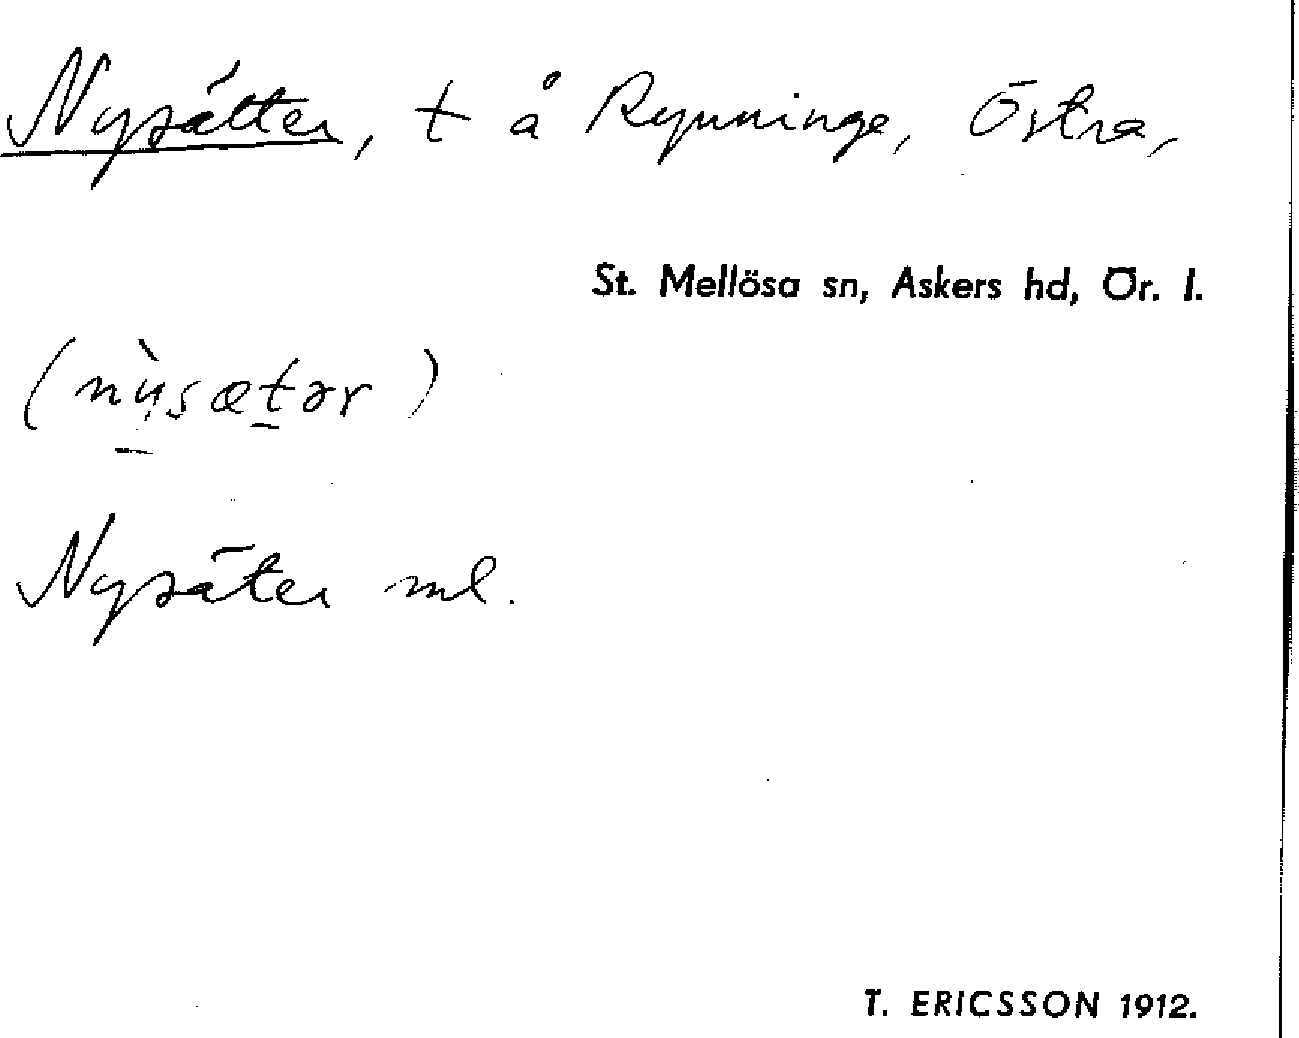 Nysätter, t å Rynninge, Östra,
St. Mellösa sn, Askers hd, Ör. l.
(nỳsætər)
Nysäter ml.
T. ERICSSON 1912.